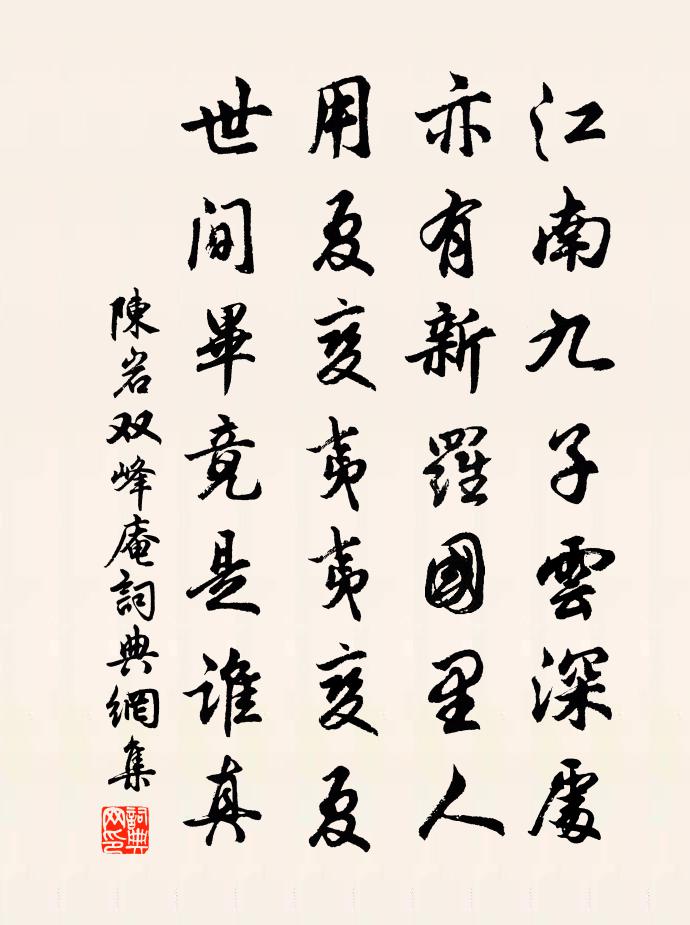 江南九子雲深處
亦有新羅國里人
用夏變夷夷變夏
世間畢竟是誰真
陳岩双峰庵詞典網集
詞典网印